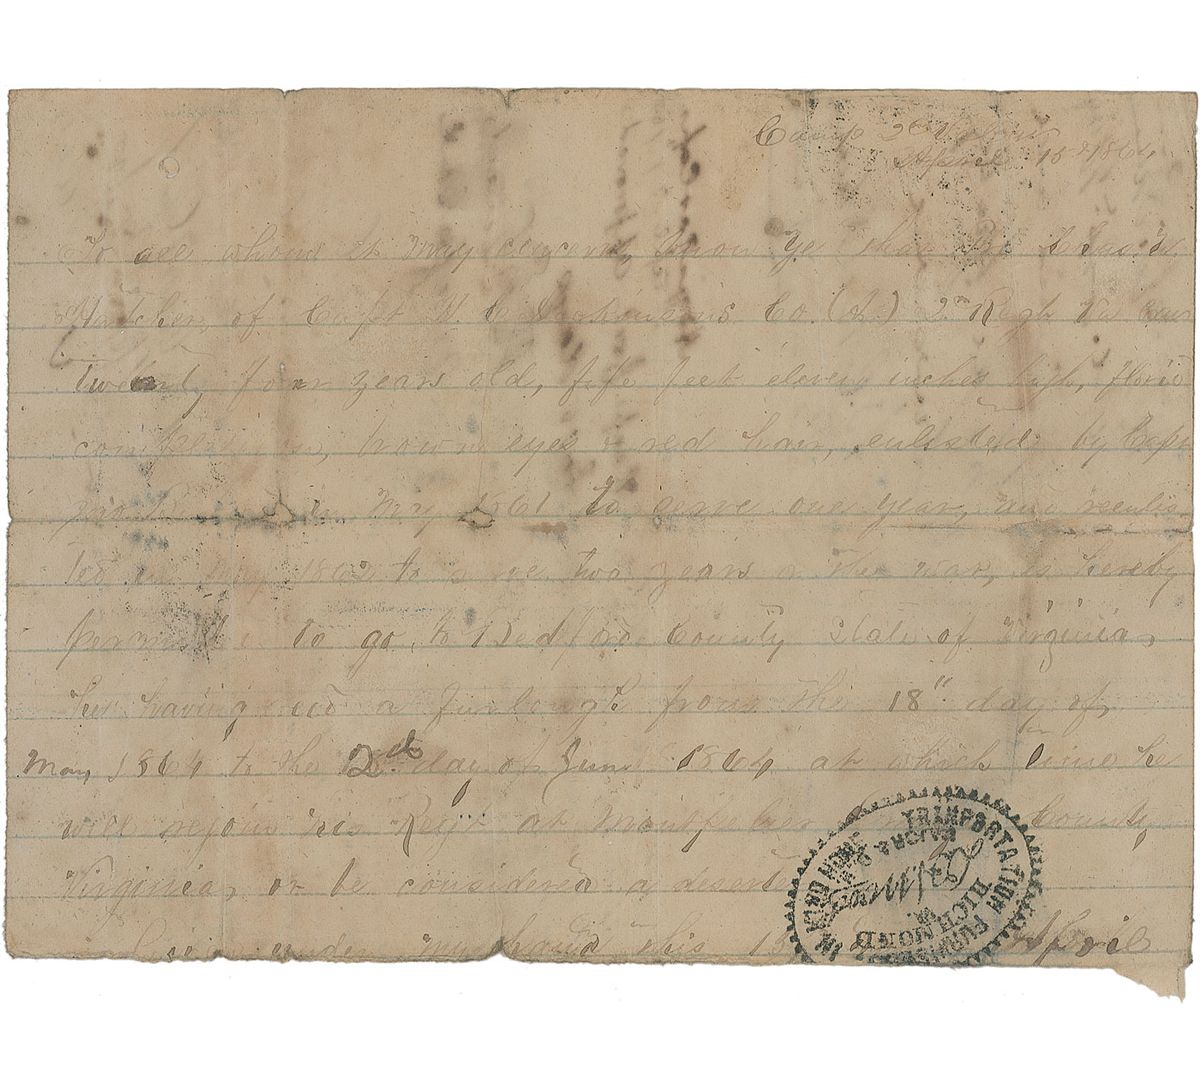 Camp 2nd Va
April 15th 1864
To all whom it may concern, know ye that
Hatcher, of Capt W Co (A.) 2nd Regt Va Cav
Twenty four years old, fife feet eleven inches high, florid
complexion, brown eyes & red hair, enlisted by Capt
in May 1861 to serve one year, and reenlis
ted in May 1862 to serve two years or the war, is hereby
permitted to go to Bedford County State of Virginia,
he having a Furlough from the 18" day of
May 1864 to the 2d day of June 1864 at which time he
will rejoin his Regt at County
Virginia, or be considered a deserter
under my hand this 15 April
TRANPORTATION FURNISHED
IN KIND
RICHMOND